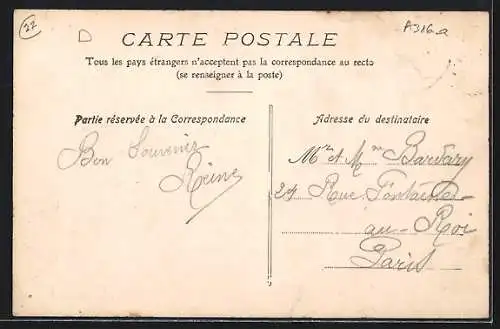 22
D
A316a
CARTE POSTALE
Tous les pays étrangers n'acceptent pas la correspondance au recto
(se renseigner à la poste)
Partie réservée à la Correspondance
Bon Souvenir
Reine
Adresse du destinataire
Mr et Mme
Rue Fontaine
au-Roi
Paris